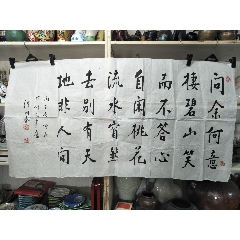 问余何意
棲碧山笑
而不答心
自闲桃花
流水窅然
去别有天
地非人间